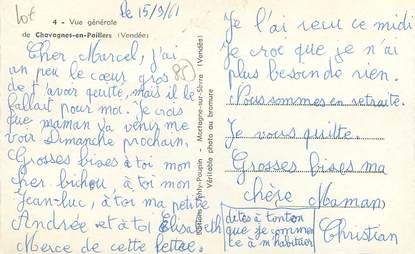 lot
4 - Vue générale
de Chavagnes-en-Paillers (Vendée)
Le 15/9/61
(85)
Cher Marcel, j'ai
un peu le cœur gros
de t'avoir quitté, mais il le
fallait pour moi. Je crois
que maman va venir me
voir Dimanche prochain.
Grosses bises à toi mon
cher bichou, à toi mon
Jean-luc, à toi ma petite
Andrée et à toi Elisabeth
Merce de cette lettre.
Poupin - Mortagne-sur-Sèvre (Vendée)
Véritable photo au bromure
Je l'ai reçu ce midi
Je croc que je n'ai
plus besoin de rien.
Nous sommes en retraite.
Je vous quitte.
Grosses bises ma
chère Maman
Christian
dites à tonton
que je commen
ce à m'habituer